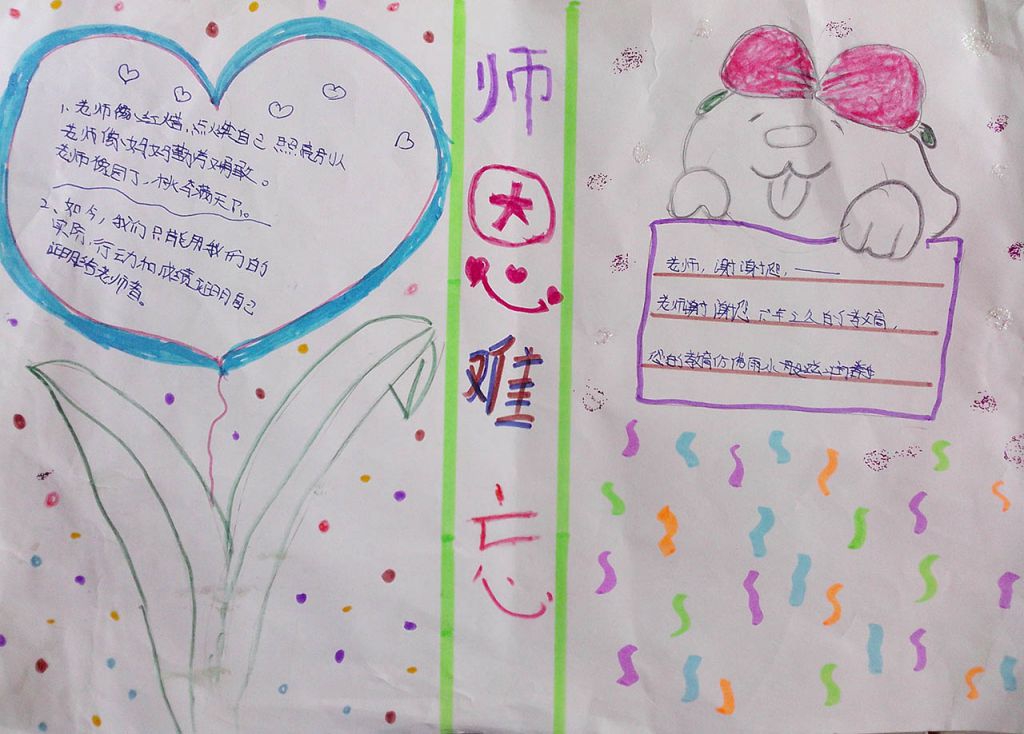 1、老师像红烛，点燃自己照亮别人
老师像妈妈勤劳勇敢。
老师像园丁，桃李满天下。
2、如今，我们只能用我们的
实际行动和成绩证明自己
证明给老师看。
师
恩
难
忘
老师，谢谢您，——
老师谢谢您这么久的教育，
您的教育仿佛雨水